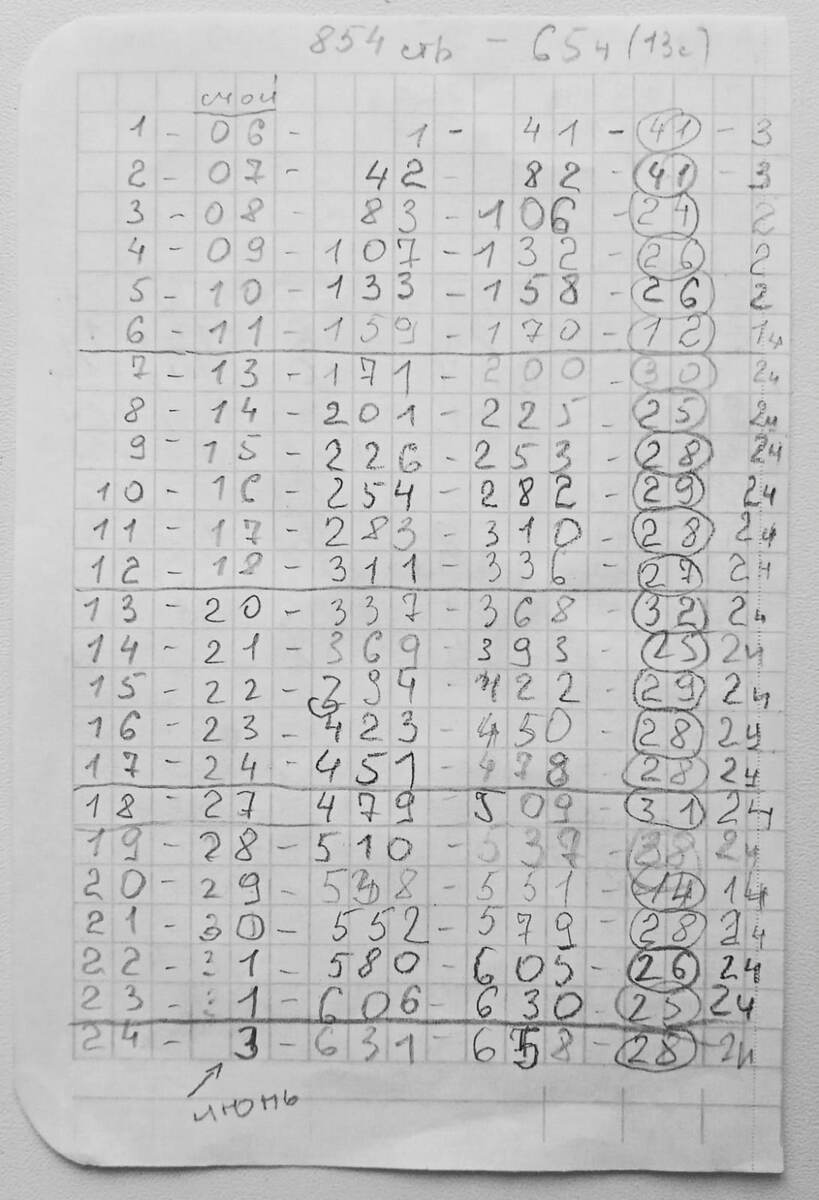 854 стр - 65ч (13с)
1 - 06 - 1 - 41 - 41 - 3
2 - 07 - 42 - 82 - 41 - 3
3 - 08 - 83 - 106 - 24 2
4 - 09 - 107 - 132 - 26 2
5 - 10 - 133 - 158 - 26 2
6 - 11 - 159 - 170 - 12 1ч
7 - 13 - 171 - 200 - 30 2ч
8 - 14 - 201 - 225 - 25 2ч
9 - 15 - 226 - 253 - 28 2ч
10 - 16 - 254 - 282 - 29 2ч
11 - 17 - 283 - 310 - 28 2ч
12 - 18 - 311 - 336 - 27 2ч
13 - 20 - 337 - 368 - 32 2ч
14 - 21 - 369 - 393 - 25 2ч
15 - 22 - 394 - 422 - 29 2ч
16 - 23 - 423 - 450 - 28 2ч
17 - 24 - 451 - 478 - 28 2ч
18 - 27 479 - 509 - 31 2ч
19 - 28 - 510 - 537 - 2ч
20 - 29 - 538 - 551 - 14 1ч
21 - 30 - 552 - 579 - 28 2ч
22 - 31 - 580 - 605 - 26 2ч
23 - 1 - 606 - 630 - 25 2ч
24 - 3 - 631 - 658 - 28 - 2ч
июнь